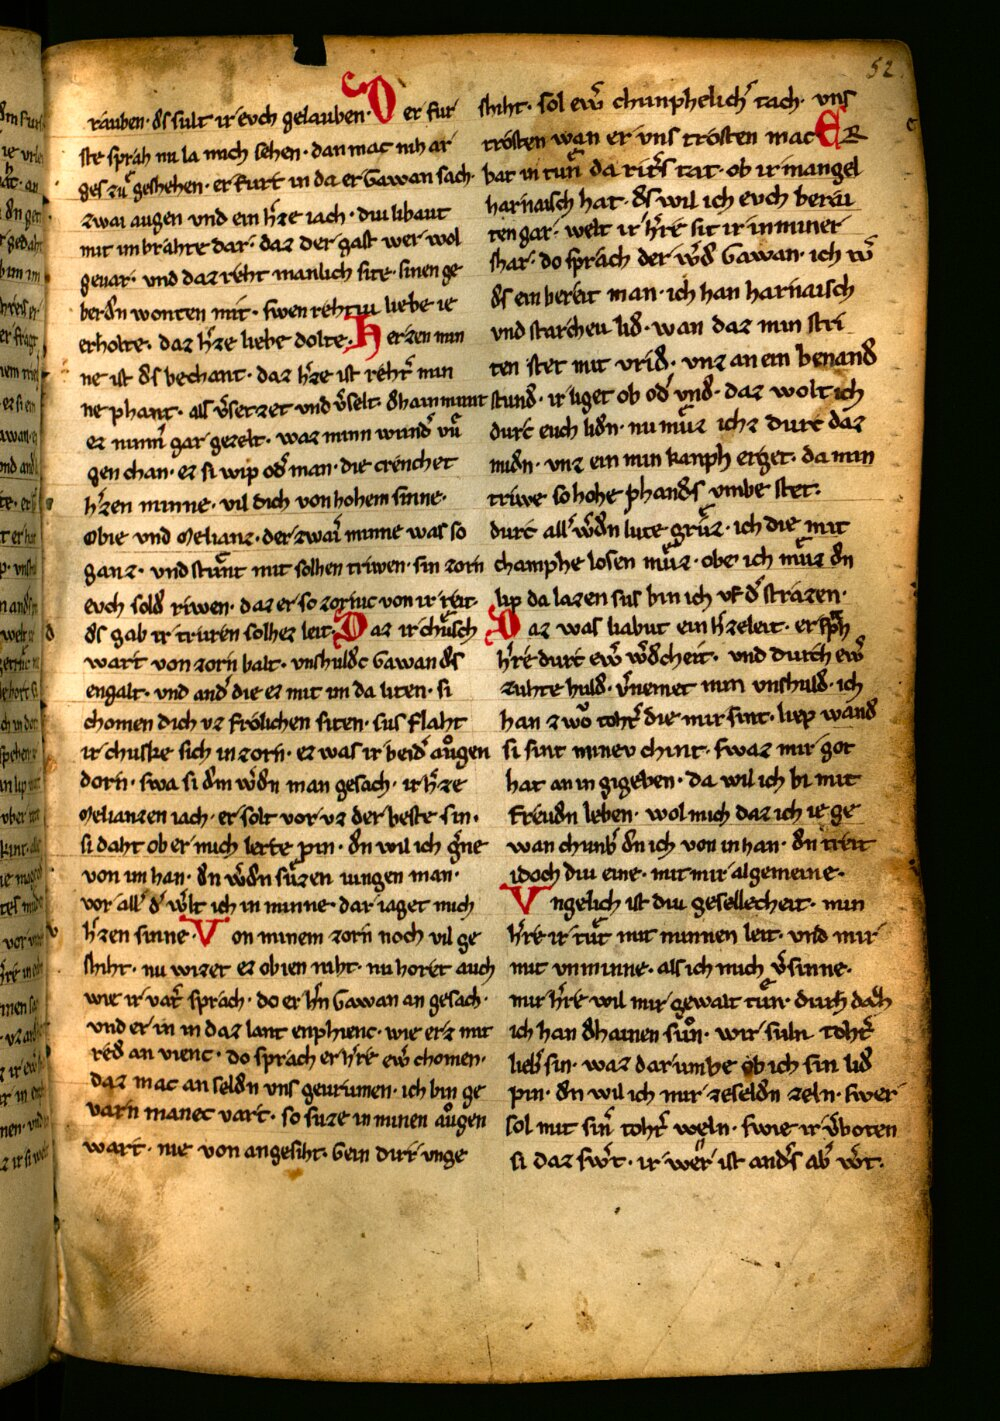 52
rauben· ds sult ir evch gelauben· Der fur
ste sprah nu la mich sehen· dan mac niht ar
ges zu geshehen· er furt in da er Gawan sach·
zwai augen und ein hze iach· diu libaut
mit im brahte dar· daz der gast wer wol
gevar· vnd daz reht manlich site· sinen ge
berdn wonten mit· swen rehtiu liebe ie
erholte· daz hze liebe dolte· Herzen min
ne ist ds bechant· daz hze ist reht min
ne phant· als vsetzet vnd vselt· dhain munt
ez nimm gar gezelt· waz minn wund vu
gen chan· ez si wip od man· die crenchet
hzen minne· vil dich von hohem sinne·
Obie vnd Melianz· der zwai minne was so
ganz· vnd stunt mit solhen triwen· sin zorn
evch sold riwen· daz er so zorniic von ir reit·
ds gab ir truren solhez leit· Daz ir chusch
wart von zorn balt· vnshuldc Gawan ds
engalt· vnd and die ez mit im da liten· si
chomen dich vz frölichen siten· sus flaht
ir chuske sich in zorn· ez was ir beid augen
dorn· swa si dm wdn man gesach· ir hze
Melianzen iach· er solt vor vz der beste sin·
si daht ob er mich lerte pin· dn wil ich gne
von im han· dn wdn suzen iungen man·
vor all d wlt ich in minne· dar iaget mich
hzen sinne· Von minem zorn noch vil ge
shiht· nu wizet ez obien niht· nu horet auch
wie ir vat sprach· do er hn Gawan an gesach·
vnd er in in daz lant enphienc· wie erz mit
red an vienc· do sprach er hre ew chomen·
daz mac an seldn vns gevrumen· ich bin ge
varn manec vart· so suze in minen augen
wart· nie von angesiht· Gein dirr vnge
shiht· sol ew chunphelich tach· vns
trösten wan er vns trösten mac ER
bat in tun da rits tat· ob ir mangel
harnaisch hat· ds wil ich evch berai
ten gar· welt ir hre sit ir in miner
shar· do sprach der wd Gawan· ich w
ds ein bereit man· ich han harnaisch
vnd starcheu lid· wan daz min stri
ten stet mit vrid· vnz an ein benand
stund· ir liget ob od vnd· daz wolt ich
durc euch lidn· nu muz ichz durc daz
midn· vnz ein min kanph erget· da min
triwe so hohe phands vmbe stet·
durc all wdn lute gruz· ich die mit
champhe losen muz· obe ich muz dn
lip da lazen sus bin ich vf d strazen·
Daz was liabut ein hzeleit· er sph
hre durc ew wdcheit· vnd durch ew
zuhte huld· vnemet min vnshuld· ich
han zwo toht die mir sint· liep wand
si sint minev chint· swaz mir got
hat an in gigeben· da wil ich bi mit
freudn leben· wol mich daz ich ie ge
wan chumb dn ich von in han· dn treit
idoch diu eine· mit mir algemeine·
Vngelich ist diu gesellecheit· min
hre ir tut mit minnen leit· vnd mir
mit vnminne· als ich mich vsinne·
mir hre wil mir gewalt tun· durh daz
ich han dhainen sun· mir suln toht
lieb sin· waz dar umbe ob ich sin lid
pin· dn wil ich mir ze seldn zeln· swer
sol mit sin toht weln· swie ir vboten
si daz swt· ir wer ist ands ab wt·